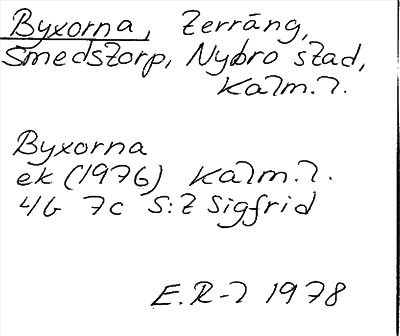 Byxorna, terräng,
Smedstorp, Nybro stad,
Kalm. l.
Byxorna
ek (1976) Kalm. l.
4G 7c S:t Sigfrid
E.R-l 1978